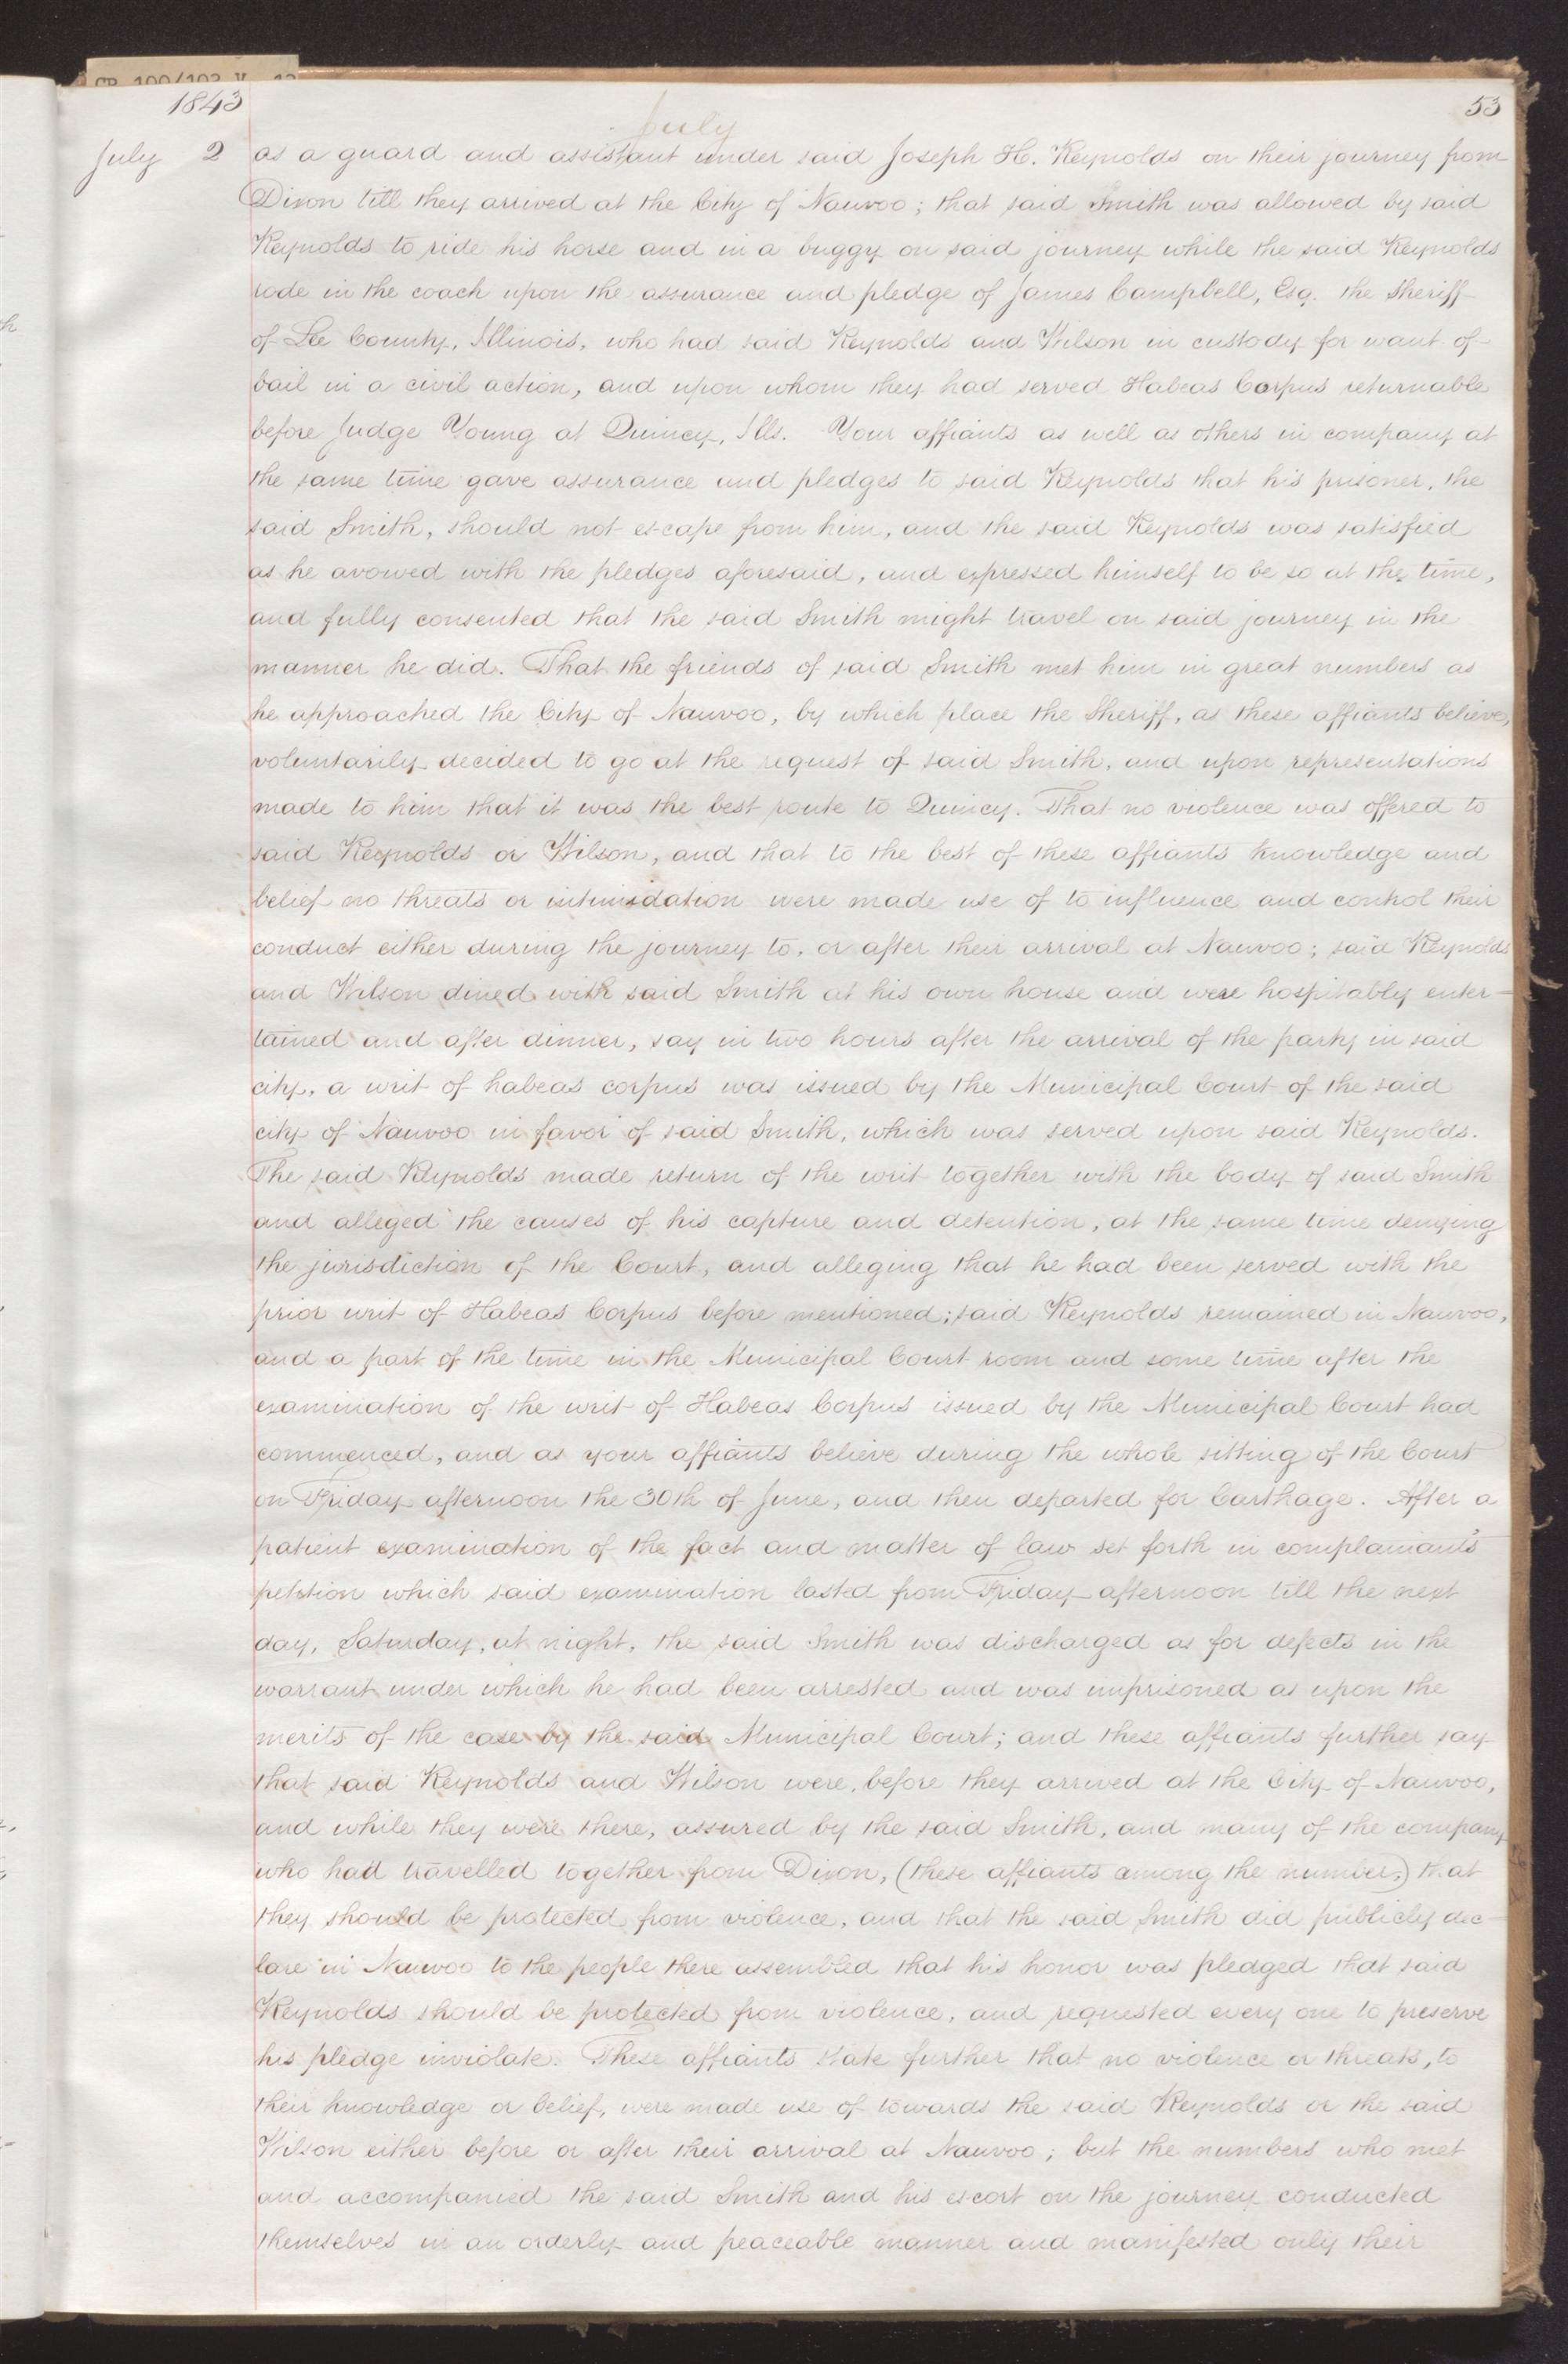 1843
53
July
July 2 as a guard and assistant under said Joseph H. Reynolds on their journey from
Dixon till they arrived at the City of Nauvoo; that said Smith was allowed by said
Reynolds to ride his horse and in a buggy on said journey while the said Reynolds
rode in the coach upon the assurance and pledge of James Campbell, Esq. the sheriff
of Lee County, Illinois, who had said Reynolds and Wilson in custody for want of
bail in a civil action, and upon whom they had served Habeas Corpus returnable
before Judge Young at Quincy, Ills. Your affiants as well as others in company at
the same time gave assurance and pledges to said Reynolds that his prisoner, the
said Smith, should not escape from him, and the said Reynolds was satisfied
as he avowed with the pledges aforesaid, and expressed himself to be so at the time,
and fully consented that the said Smith might travel on said journey in the
manner he did. That the friends of said Smith met him in great numbers as
he approached the City of Nauvoo, by which place the Sheriff, as these affiants believe,
voluntarily decided to go at the request of said Smith, and upon representations
made to him that it was the best route to Quincy. That no violence was offered to
said Reynolds or Wilson, and that to the best of these affiants knowledge and
belief no threats or intimidation were made use of to influence and control their
conduct either during the journey to, or after their arrival at Nauvoo; said Reynolds
and Wilson dined with said Smith at his own house and were hospitably enter-
tained and after dinner, say in two hours after the arrival of the party in said
city, a writ of habeas corpus was issued by the Municipal Court of the said
city of Nauvoo in favor of said Smith, which was served upon said Reynolds.
The said Reynolds made return of the writ together with the body of said Smith
and alleged the causes of his capture and detention, at the same time denying
the jurisdiction of the Court, and alleging that he had been served with the
prior writ of Habeas Corpus before mentioned; said Reynolds remained in Nauvoo,
and a part of the time in the Municipal Court room and some time after the
examination of the writ of Habeas Corpus issued by the Municipal Court had
commenced, and as your affiants believe during the whole sitting of the Court
on Friday afternoon the 30th of June, and then departed for Carthage. After a
patient examination of the fact and matter of law set forth in complainant's
petition which said examination lasted from Friday afternoon till the next
day, Saturday, at night, the said Smith was discharged as for defects in the
warrant under which he had been arrested and was imprisoned as upon the
merits of the case by the said Municipal Court; and these affiants further say
that said Reynolds and Wilson were, before they arrived at the City of Nauvoo,
and while they were there, assured by the said Smith, and many of the company
who had travelled together from Dixon, (these affiants among the number,) that
they should be protected from violence, and that the said Smith did publicly dec-
lare in Nauvoo to the people there assembled that his honor was pledged that said
Reynolds should be protected from violence, and requested every one to preserve
his pledge inviolate. These affiants state further that no violence or threats, to
their knowledge or belief, were made use of towards the said Reynolds or the said
Wilson either before or after their arrival at Nauvoo; but the numbers who met
and accompanied the said Smith and his escort on the journey conducted
themselves in an orderly and peaceable manner and manifested only their